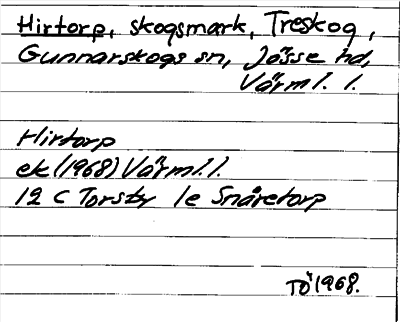 Hirtorp, skogsmark, Treskog,
Gunnarskogs sn, Jösse hd,
Värml. l.
Hirtorp
ek (1968) Värml. l.
12 C Torsby 1e Snåretorp
TÖ 1968.